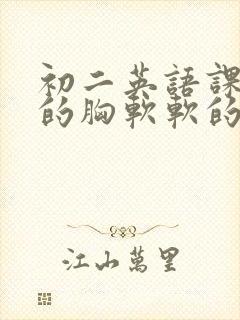 初二英語課
的胸軟軟的
江山萬里